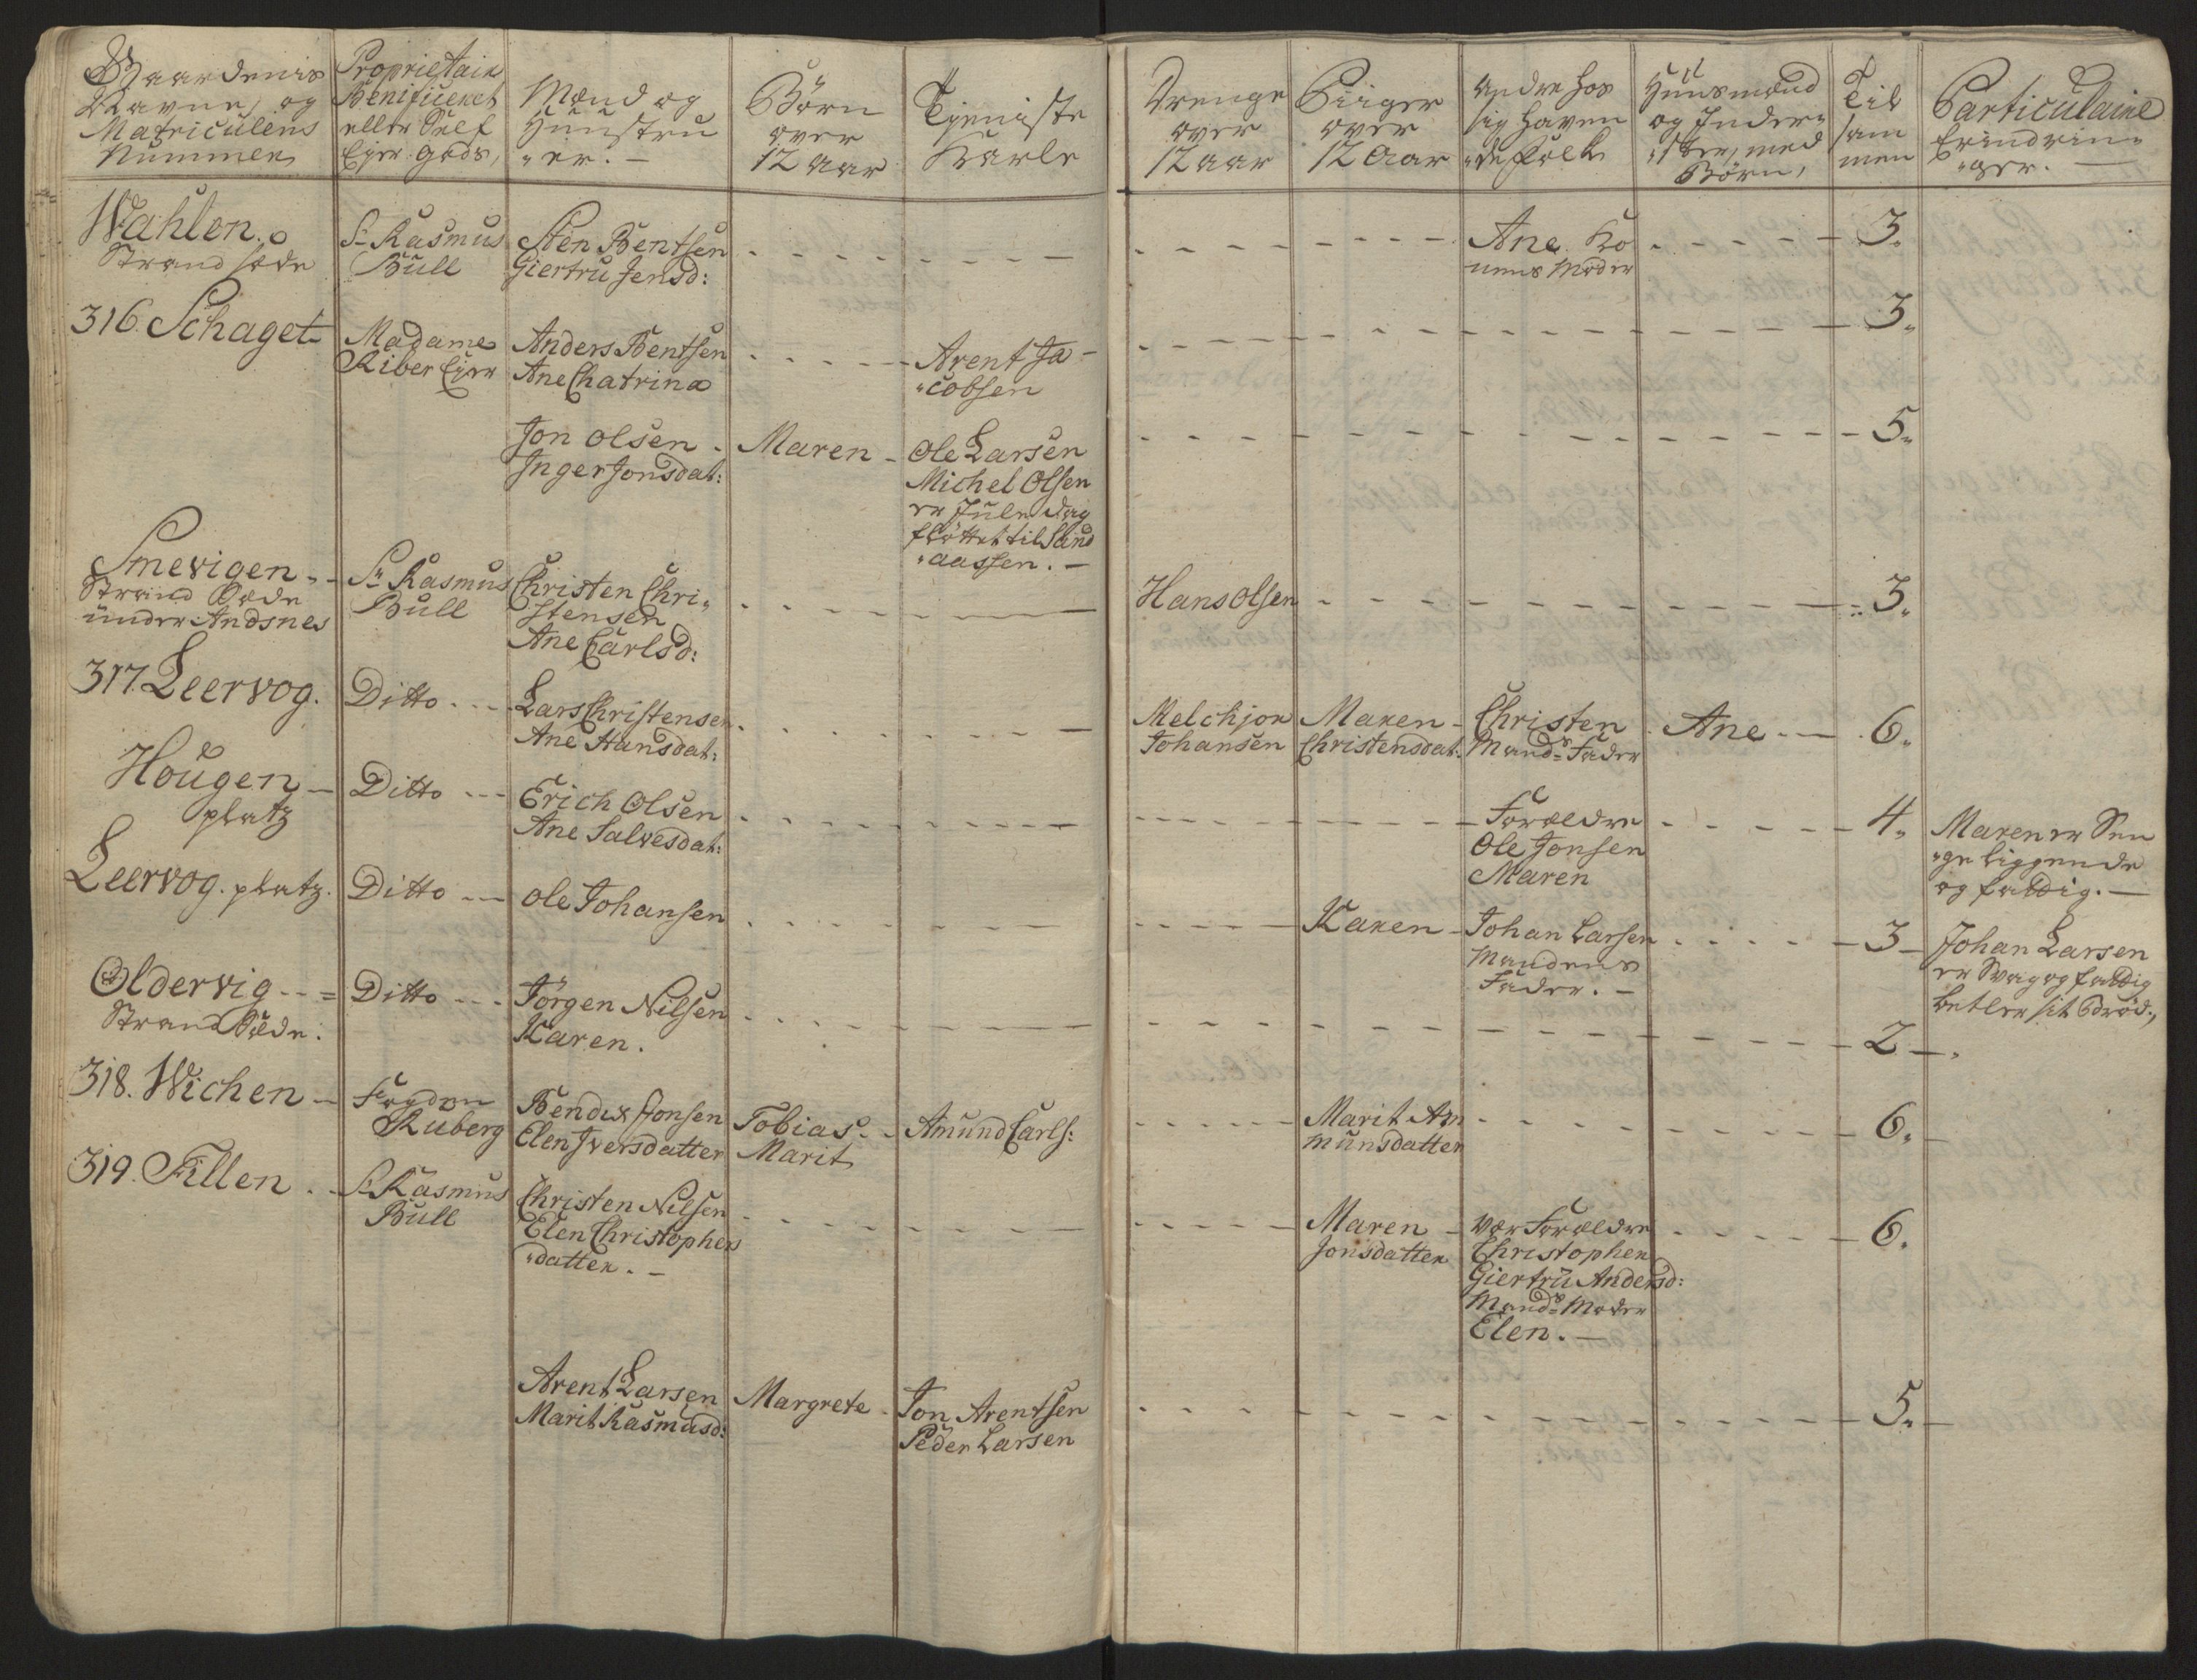 Gaardenis
Navne, og
Matriculens
Nummer
Proprietair
Benificeret
eller Self
Ejer gods,
Mænd og
Hünstru
"er. —
Börn
over
12 aar
Tjeniste
Karle
Drenge
over
12 aar
Piiger
over
12 Aar
Andre hos
sig haven
"de folk
Hüüsmænd
og Inder=
"ster, med
Börn,
Til
sam
men
Particulaire
Erindrin=
"ger. —
Wahlen.
Strand sæde
Sr Rasmus
Bull
Sten Bentsen
Giertru Jensd:
Ane. Ko
nens Moder
3.
316. Schaget
Madame
Riber Ejer
Anders Bentsen
Ane Chatrina
Arent Ja-
"cobsen
3.
Jon olsen
Inger Jonsdat:
Maren
Ole Larsen
Michel Olsen
er Jule dag
fløttet til Sand
"aassen. —
5.
Smevigen
Strand Sæde
ünder Andsnes
Sr Rasmus
Bull
Christen Chri=
stensen
Ane Carlsd:
Hans Olsen
3.
317. Leervog.
Ditto
Lars Christensen
Ane Hansdat:
Melchjor
Johansen
Maren
Christensdat:
Christen
Mands Fader
Ane
6.
Hougen
platz
Ditto
Erich Olsen
Ane Salvesdat:
Forældre
Ole Jonsen
Maren
4.
Maren er Sen
"ge liggende
og fattig. —
Leervog. platz.
Ditto
Ole Johansen
Karen
Johan Larsen
Mandens
Fader. —
3
Johan Larsen
er Svag og fattig
betler sit brød.,
Oldervig
Strand Sæde.
Ditto
Jörgen Nilsen
Karen.
2
318. Wichen
Fogden
Ruberg
Bendix Jonsen
Elen Iversdatter
Tobias
Marit
Amund Carls:
Marit Am
munsdatter
6.
319. Fillen
Sr Rasmus
Bull
Christen Nilsen
Elen Christophers
"datter. —
Maren
Jonsdatter
Vær forældre
Christopher
Giertrü Andersd:
Mands Moder
Elen. —
6.
Arent Larsen
Marit Rasmusd:
Margrete
Jon Arentsen
Peder Larsen
5.